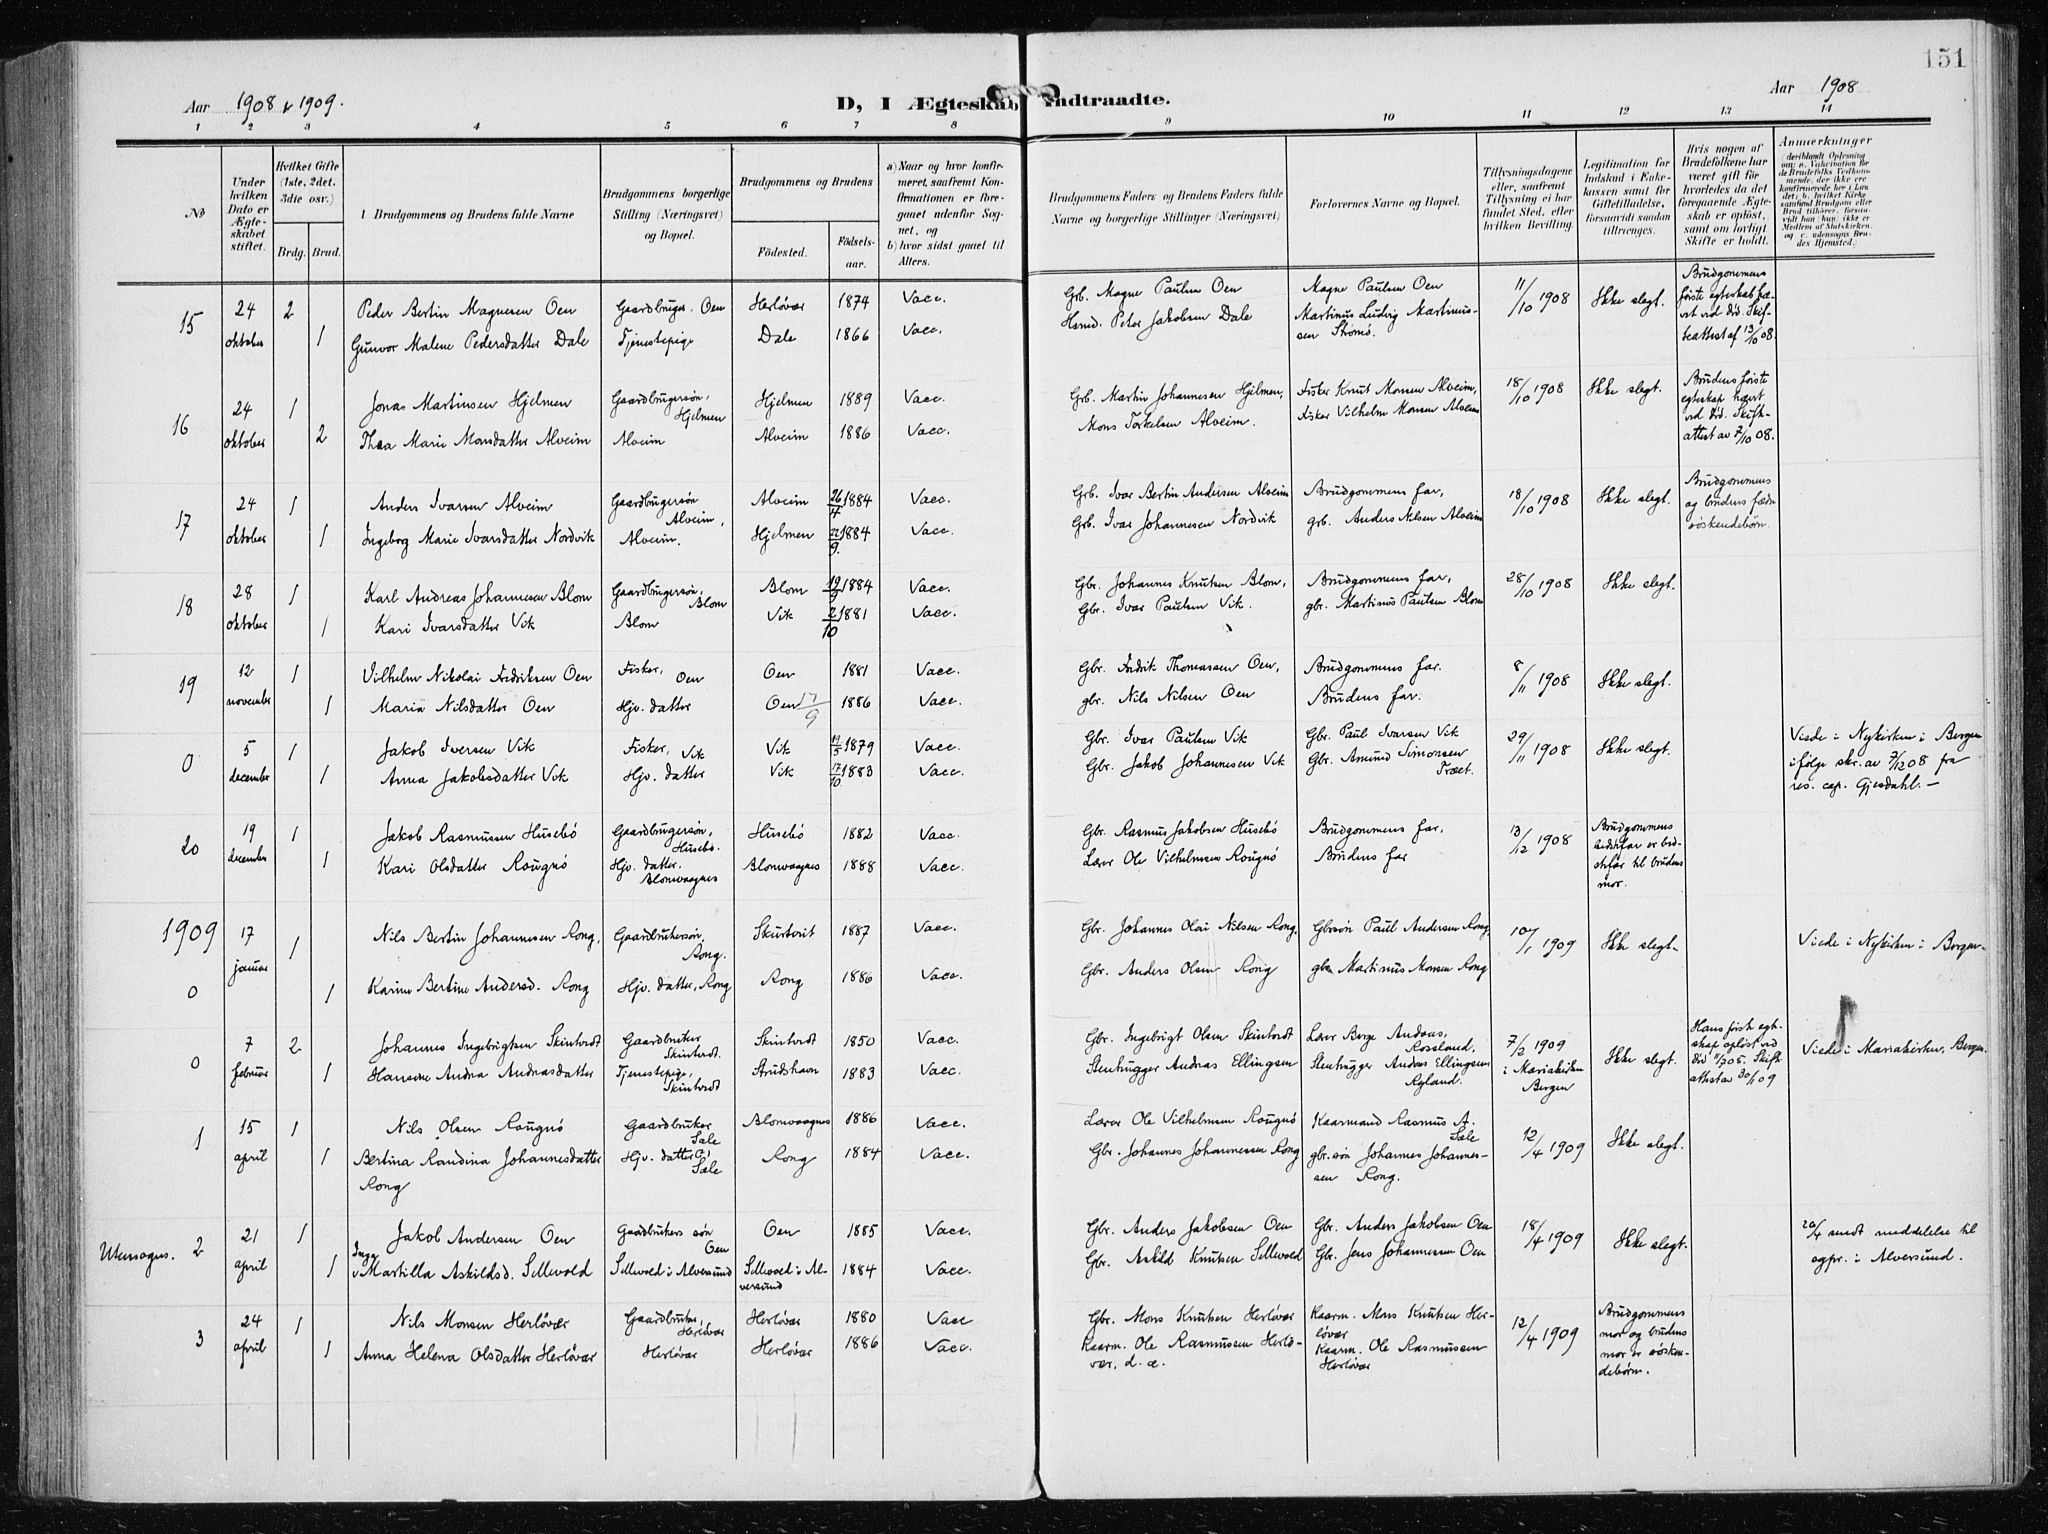 151
Aar 1908 & 1909.
D, I Ægteskab Indtraadte.
Aar 1908
1 2 3 4 5 6 7 8 9 10 11 12 13 14
No
Under hvilken Dato er Ægteskabet stiftet.
Hvilket Gifte (1ste, 2det, 3dte osv.)
Brdg. Brud.
Brudgommens og Brudens fulde Navne
Brudgommens borgerlige Stilling (Næringsvei) og Bopæl.
Brudgommens og Brudens
Födested.
Födselsaar.
a) Naar og hvor konfirmeret, saafremt Konfirmationen er foregaaet udenfor Sognet, og
b) hvor sidst gaaet til Alters.
Brudgommens Faders og Brudens Faders fulde Navne og borgerlige Stillinger (Næringsvei)
Forlovernes Navne og Bopæl.
Tillysningsdagene eller, saafremt Tillysning ei har fundet Sted, efter hvilken Bevilling.
Legitimation for Indskud i Enkekassen samt for Giftetilladelse, forsaavidt saadan tiltrænges.
Hvis nogen af Brudefolkene har været gift för hvorledes da det foregaaende Ægteskab er oplöst, samt om lovligt Skifte er holdt.
Anmærkninger
15 24 oktober 2 Peder Bertin Magnesen Oen Gaardbruger. Oen Herlövær 1874 Vacc. Grb. Magne Paulsen Oen Magne Paulsen Oen 11/10 1908 Ikke slegt. Brudgommens förste egteskab hævet ved död. Skifteattest af 13/10 08.
1 Gunvor Malene Pedersdatter Dale Tjenestepige Dale 1866 Vacc. Hsmd. Peter Jakobsen Dale Martinus Ludvig Martinussen Strömö.
16 24 oktober 1 Jonas Martinsen Hjelmen Gaardbrugersön, Hjelmen Hjelmen 1889 Vacc. Grb. Martin Johannesen Hjelmen, Fisker Knut Monsen Alveim, 18/10 1908 Ikke slegt. Brudens förste egteskap hævet ved död. Skifteattest av 7/10 08.
2 Thea Marie Monsdatter Alveim Alveim Alveim 1886 Vacc. Mons Torkelsen Alveim. Fisker Vilhelm Monsen Alveim
17 24 oktober 1 Anders Ivarsen Alveim Gaardbrugersön Alveim, Alveim 26/4 1884 Vacc. Grb. Ivar Bertin Andersen Alveim Brudgommens far, 18/10 1908 Ikke slegt. Brudgommens og brudens fædre söskendebörn.
1 Ingeborg Marie Ivarsdatter Nordvik Alveim. Hjelmen 22/9 1884 Vacc. Grb. Ivar Johannesen Nordvik grb. Anders Nilsen Alveim
18 28 oktober 1 Karl Andreas Johannesen Blom Gaardbrugersön, Blom Blom 19/9 1884 Vacc. Gbr. Johannes Knutsen Blom, Brudgommens far, 28/10 1908 Ikke slegt.
1 Kari Ivarsdatter Vik Blom Vik 2/10 1881 Vacc. Gbr. Ivar Paulsen Vik. gbr. Martinus Paulsen Blom
19 12 november 1 Vilhelm Nikolai Fredriksen Oen Fisker, Oen Oen 1881 Vacc. Gbr. Fredrik Thomassen Oen, Brudgommens far. 8/11 1908 Ikke slegt.
1 Maria Nilsdatter Oen Hjv. datter Oen 17/9 1886 Vacc. gbr. Nils Nilsen Oen Brudens far.
0 5 december 1 Jakob Iversen Vik Fisker, Vik Vik 19/5 1879 Vacc. Gbr. Ivar Paulsen Vik Gbr. Paul Ivarsen Vik 29/11 1908 Ikke slegt. Viede i Nykirken i Bergen ifölge skr. av 7/12 08 fra res. cap. Gjesdahl. —
1 Anna Jakobsdatter Vik Hjv. datter Vik 17/10 1883 Vacc. Gbr. Jakob Johannesen Vik Gbr. Amund Simonsen Træet.
20 19 december 1 Jakob Rasmussen Husebö Gaardbrugersön, Husebö. Husebö 1882 Vacc. Gbr. Rasmus Jakobsen Husebö Brudgommens far, 13/12 1908 Brudgommens bedstfar er bedstfar til brudens mor.
1 Kari Olsdatter Rougnö Hjv. datter. Blomvaagnes Blomvaagnes 1888 Vacc. Lærer Ole Vilhelmsen Rougnö Brudens far
1909
0 17 januar 1 Nils Bertin Johannesen Rong, Gaardbrukersön, Rong. Skurtveit 1887 Vacc. Gbr. Johannes Olai Nilsen Rong. Gbrsön Paul Andersen Rong, 10/1 1909 Ikke slegt. Viede i Nykirken i Bergen.
1 Karine Bertine Andersd. Rong Hjv. datter, Rong Rong 1886 Vacc. Gbr. Anders Olsen Rong gbr. Martinus Monsen Rong
0 7 februar 2 Johannes Ingebrigtsen Skintvedt Gaardbruker Skintvedt. Skintvedt 1850 Vacc. Gbr. Ingebrigt Olsen Skintvedt Lærer Berge Andreas, Rossland, 7/2 1909 i Mariakirken Bergen Ikke slegt. Hans först egteskap oplöst ved död 11/7 05. Skifteattest av 30/1 09 Viede i Mariakirken, Bergen.
1 Hansine Andrea Andreasdatter Tjenestepige, Skintvedt Strudshavn 1883 Vacc. Stenhugger Andreas Ellingsen Stenhugger Andreas Ellingsen Ryland.
1 15 april 1 Nils Olsen Rougnö Gaardbruker Sæle Blomvaagnes 1886 Vacc. Lærer Ole Vilhelmsen Rougnö Kaarmand Rasmus A. Sæle 12/4 1909 Ikke slegt.
1 Bertina Randina Johannesdatter Rong Hjv. datter, Sæle Rong 1884 Vacc. Gbr. Johannes Johannessen Rong gbr.sön Johannes Johannessen Rong.
Utensogns. 2 21 april 1 Jakob Andersen Oen Gaardbrukers sön Oen Oen 1885 Vacc. Gbr. Anders Jakobsen Oen Gbr. Anders Jakobsen Oen 18/4 1909 Ikke slegt. 20/4 sendt meddelelse til sogpr. i Alversund.
1 Inga Martilla Askildsd. Sellevold Sellevold i Alversund Sellevold i Alversund 1884 Vacc. Gbr. Askild Knutsen Sellevold Gbr. Jens Johannessen Oen
3 24 april 1 Nils Monsen Herlövær Gaardbruker, Herlövær Herlövær 1880 Vacc Gbr. Mons Knutsen Herlövær Kaarm. Mons Knutsen Herlövær 12/4 1909 Brudgommens mor og brudens mor er söskendebörn.
1 Anna Helena Olsdatter Herlövær Herlövær Herlövær 1886 Vacc. Kaarm. Ole Rasmussen Herlövær, d. æ. Kaarm. Ole Rasmussen Herlövær